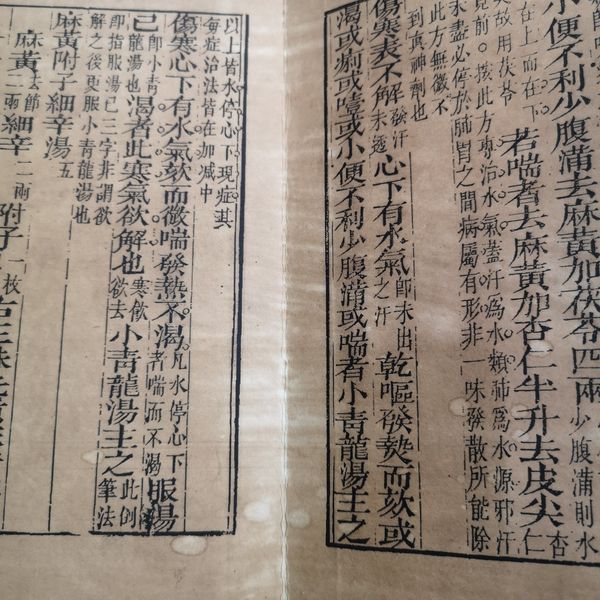 小便不利少腹滿去麻黃加茯苓四兩少腹滿則水
在上而在下
矣故用茯苓
若喘者去麻黃加杏仁半升去皮尖杏仁
見前。按此方專治水氣蓋汗爲水類肺爲水源邪汗
未盡必停於肺胃之間病屬有形非一味發散所能除
此方無微不
到真神劑也
傷寒表不解發汗未透心下有水氣即未出之汗乾嘔發熱而欬或
渴或痢或噎或小便不利少腹滿或喘者小青龍湯主之
以上皆水停心下現症其
每症治法皆在加減中
傷寒心下有水氣欬而微喘發熱不渴凡水停心下者喘而不渴服湯
已即小青龍湯也渴者此寒氣欲解也寒飲欲去小青龍湯主之此倒筆法
即指服湯已三字非謂欲
解之後更服小青龍湯也
麻黃附子細辛湯五
麻黃去節二兩細辛二兩附子一枚